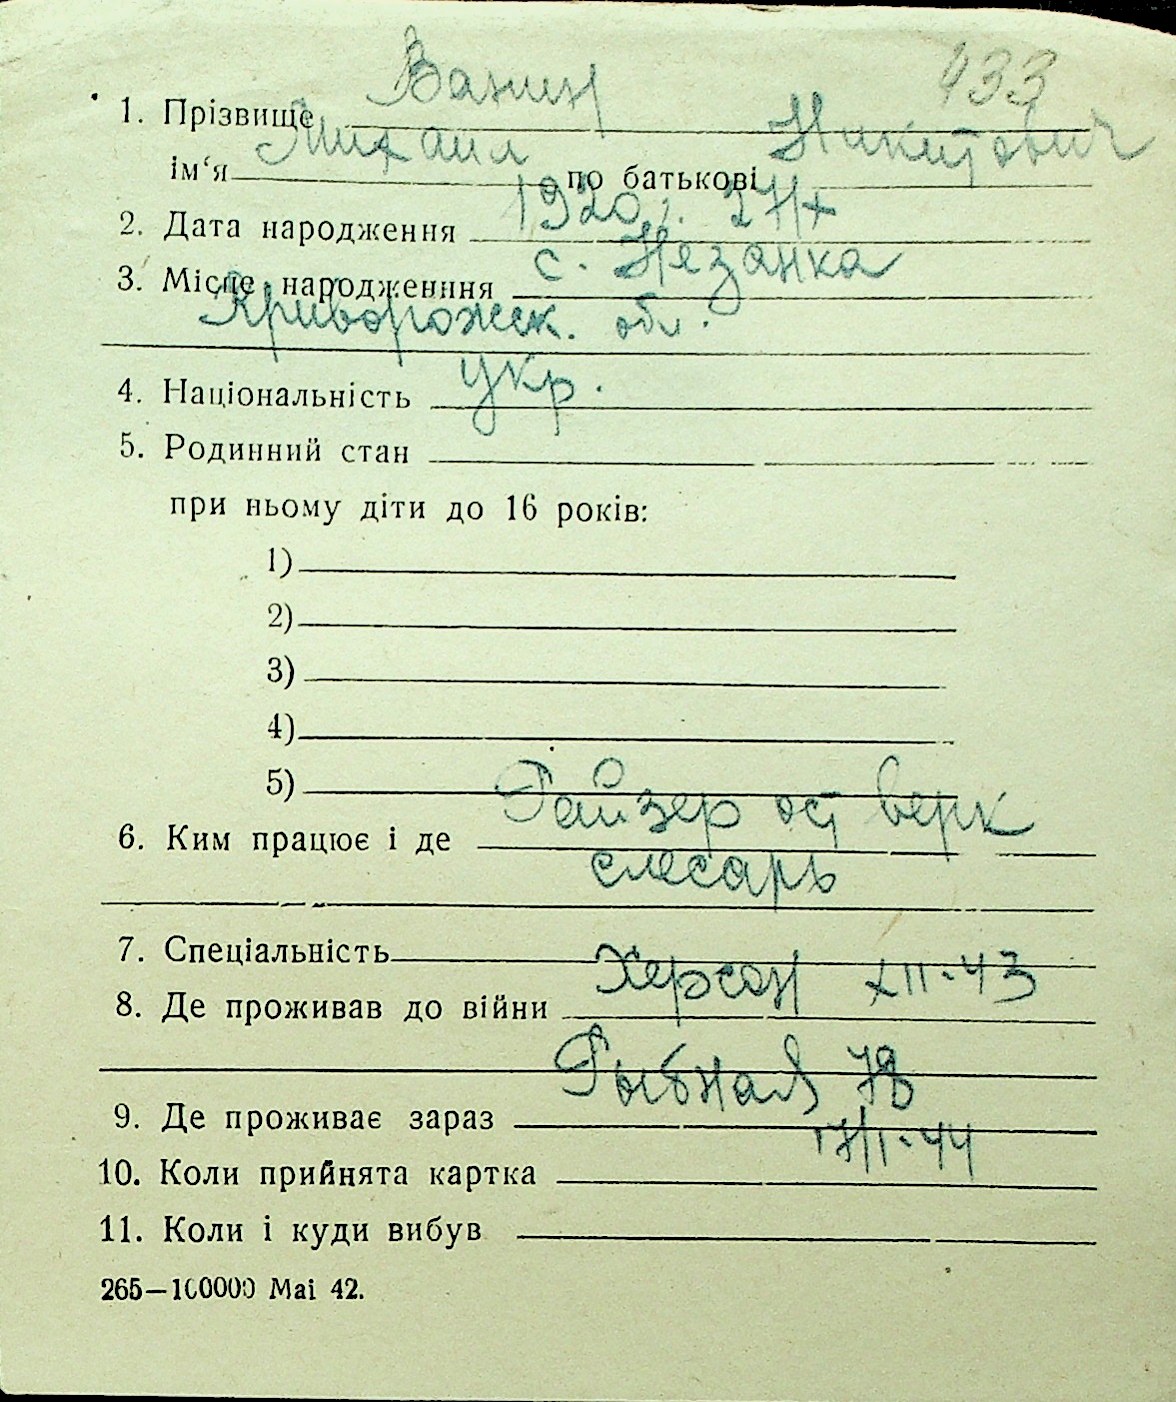 433
1. Прізвище Ванин
ім‘я Михаил по батькові Никитович
2. Дата народження 1920 г. 27/IX
3. Місце народженння с. Незанка
Криворожск. обл.
4. Національність укр.
5. Родинний стан
при ньому діти до 16 років:
1)
2)
3)
4)
5)
6. Ким працює і де Гайзер ост верк
слесарь
7. Спеціальність
8. Де проживав до війни Херсон XII-43
9. Де проживає зараз Рыбная 78
10. Коли прийнята картка 17/I-44
11. Коли і куди вибув
265—100000 Mai 42.